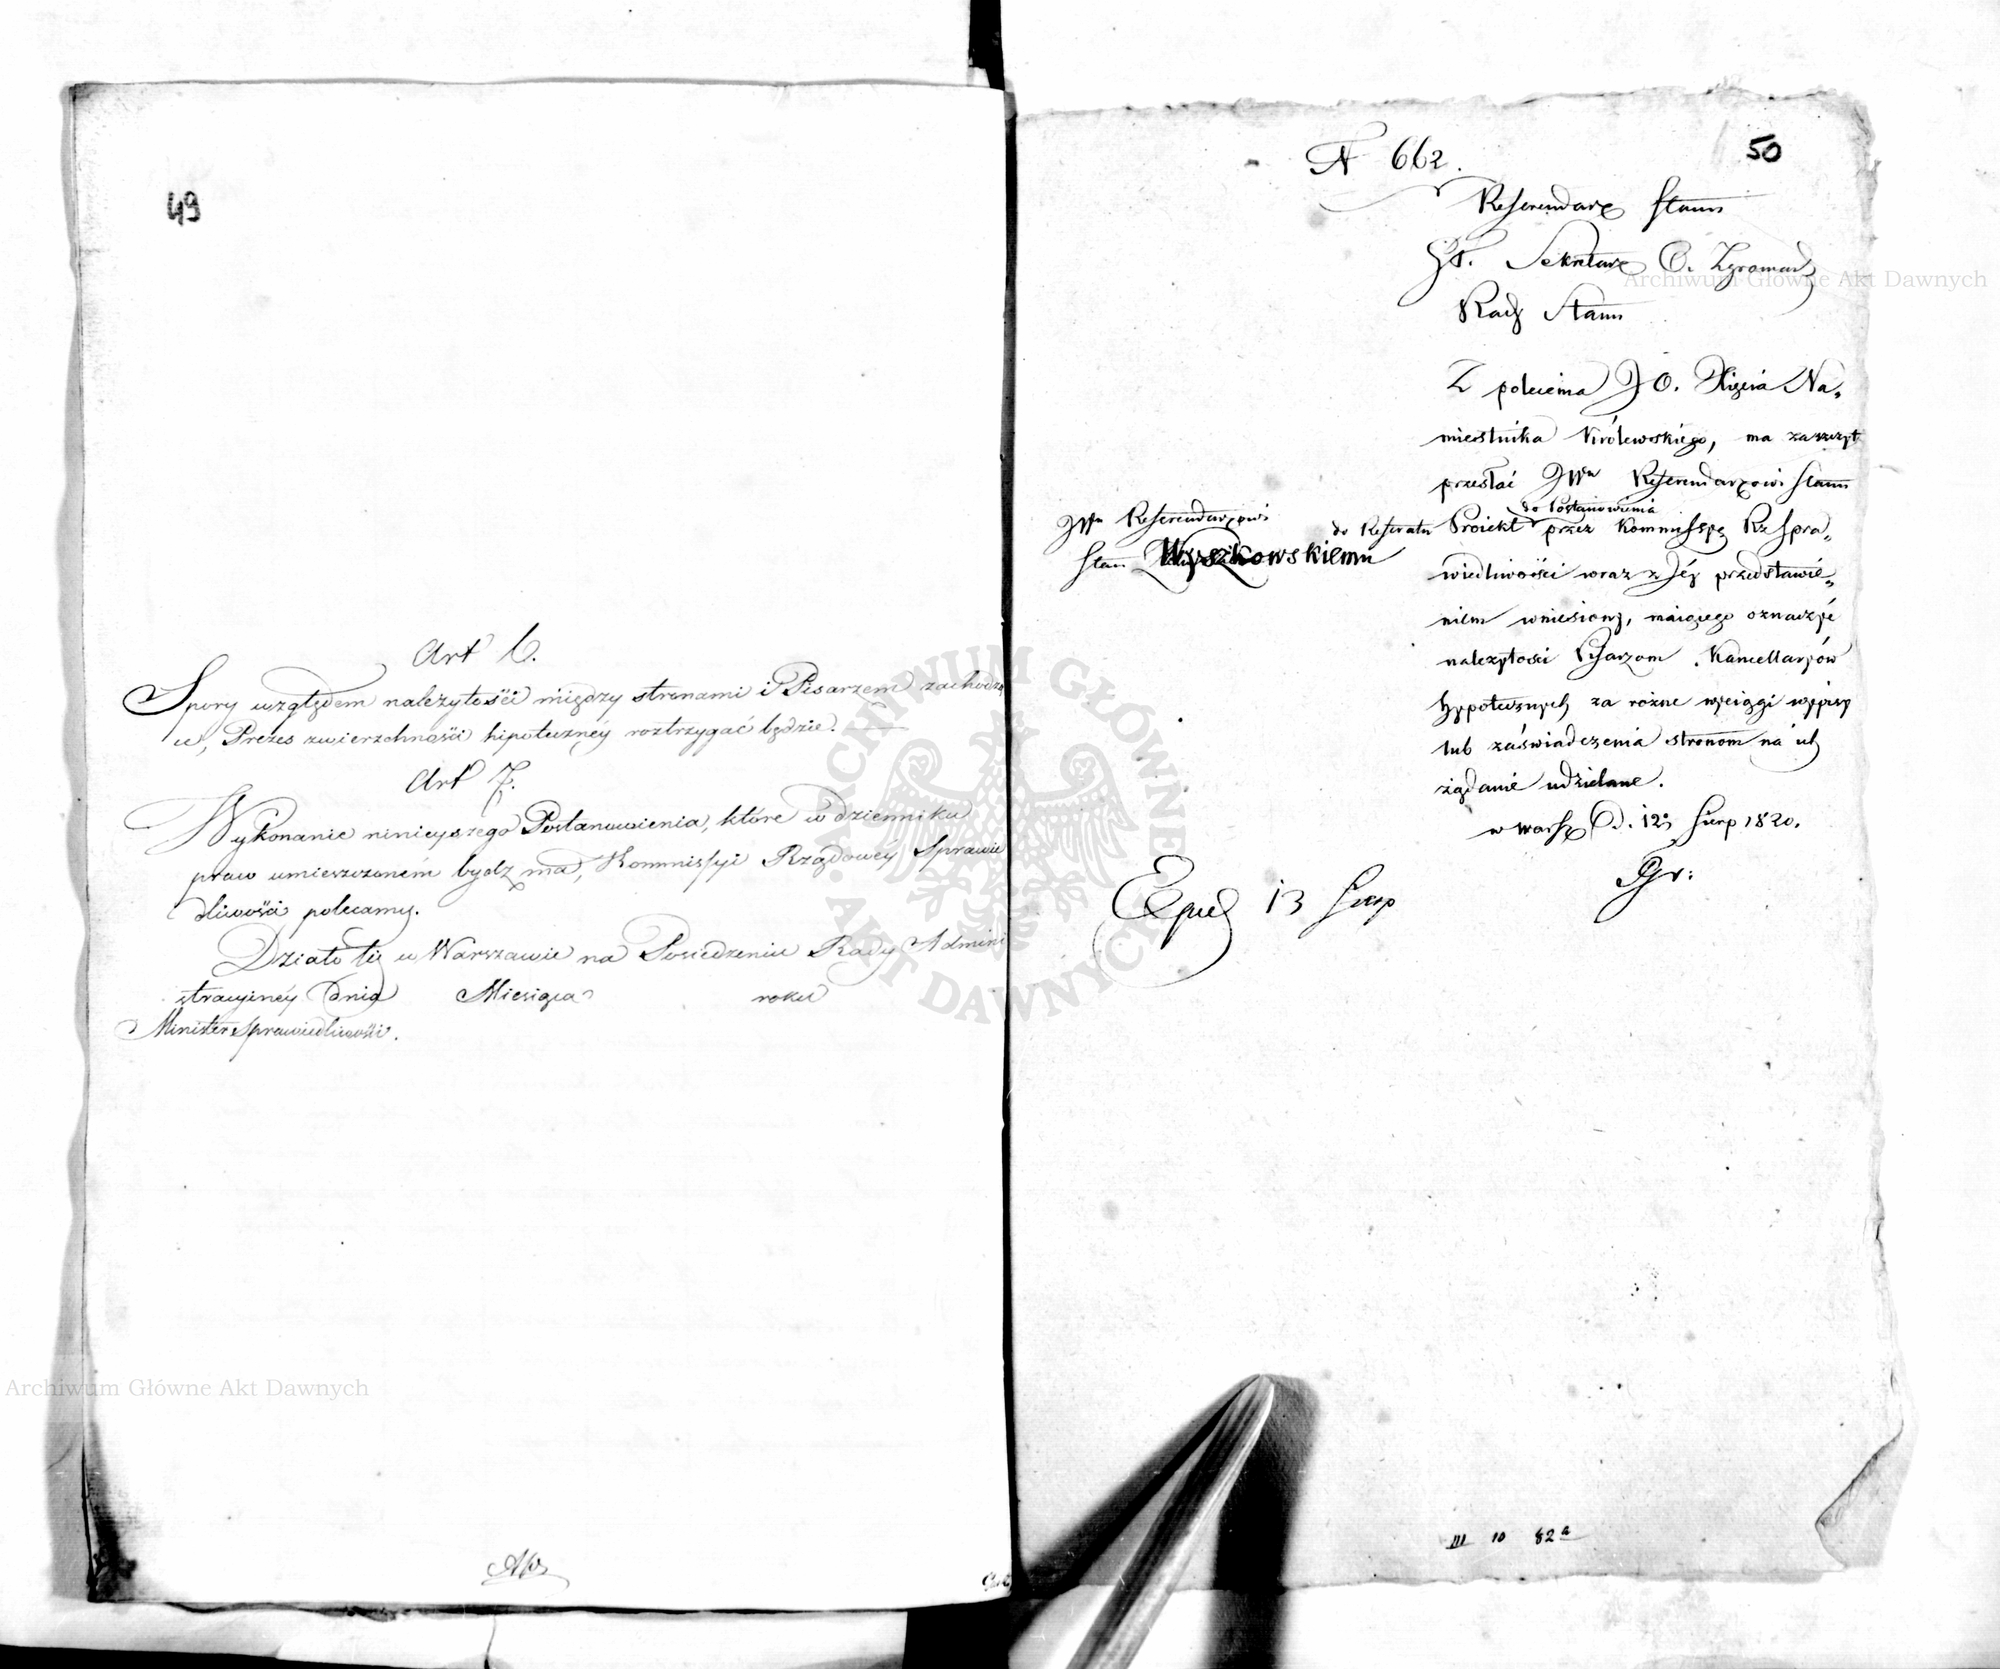 49
Art 6.
Spory względem należytości między stronami i Pisarzem zachodzą
ce, Prezes zwierzchności hipoteczney roztrzygać będzie.
Art 7.
Wykonanie ninieyszego Postanowienia, które w dzienniku
praw umieszczoném bydz ma, Kommissyi Rządowéy Sprawie
dliwości polecamy.
Działo się w Warszawie na Posiedzeniu Rady Admini
stracyinéy Dnia Miesiąca roku
Minister Sprawiedliwości.
N 662.
50
Referendarz Stanu
Sekretarz O. Zgromadz
Rady Stanu
Z polecenia JO. Xięcia Na„
miestnika Królewskiego, ma zaszczyt
przesłać JWu Referendarzowi Stanu
do Postanowienia
do Referatu Proiekt przez Kommissyę Rz Spra„
wiedliwości wraz z Jéy przedstawie„
niem wniesiony, maiącego oznaczyć
należytości Pisarzom Kancellaryów
hyppotecznych za rożne wyciągi wypisy
lub zaświadczenia stronom na ich
żądanie udzielane.
w Warsz D. 12 Sierp 1820.
JWu Referendarzowi
Stanu Wyszkowskiemu
Exped 13 Sierp
III 10 82a
Archiwum Główne Akt Dawnych
Archiwum Główne Akt Dawnych
ARCHIWUM GŁÓWNE AKT DAWNYCH